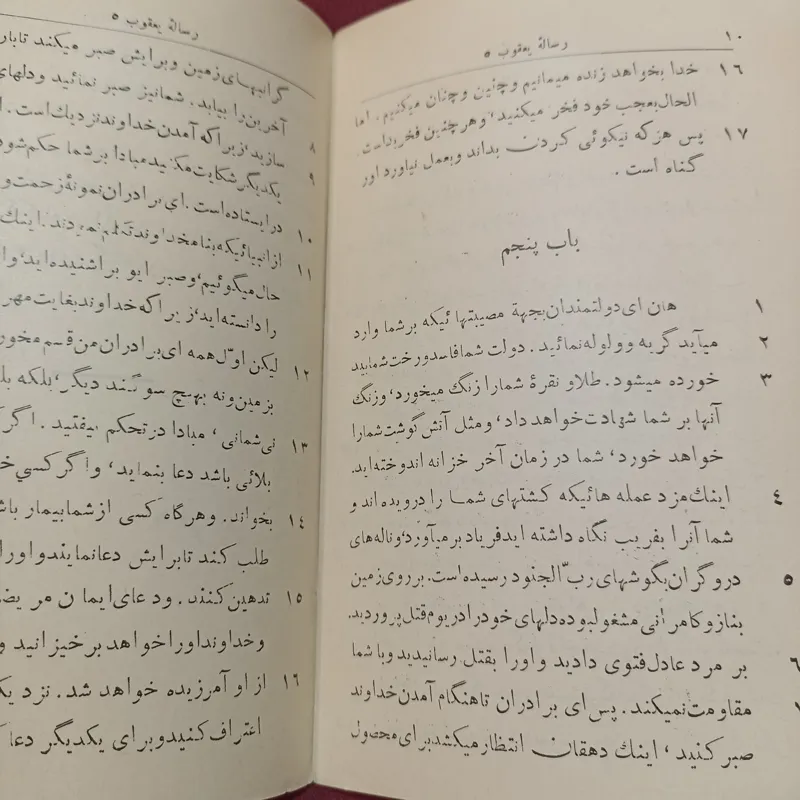 ۱۰
رسالهٔ یعقوب ۵
۱۶ خدا بخواهد زنده میمانیم و چنین و چنان میکنیم . اما
الحال بعجب خود فخر میکنید ٬ و هر چنین فخر بد است .
۱۷ پس هر که نیکوئی کردن بداند و بعمل نیاورد اور
گناه است .
باب پنجم
۱ هان ای دولتمندان بجهة مصیبتها ئیکه بر شما وارد
۲ میآید گریه و ولوله نمائید . دولت شما فاسد و رخت شما بید
۳ خورده میشود . طلا و نقرهٔ شما را زنگ میخورد ٬ و زنگ
آنها بر شما شهادت خواهد داد ٬ و مثل آتش گوشت شما را
خواهد خورد ٬ شما در زمان آخر خزانه اندوخته‌اید.
۴ اینك مزد عمله هائیکه کشتهای شما را درویده اند و
شما آنرا بفریب نگاه داشته اید فریاد بر میآورد ٬ و ناله های
۵ دروگران بگوشهای ربّ الجنود رسیده است . بر روی زمین
بناز و کامرانی مشغول بوده دلهای خود را در یوم قتل پروردید.
۶ بر مرد عادل فتوی دادید و اورا بقتل رسانیدید و با شما
مقاومت نمیکند . پس ای برادران تا هنگام آمدن خداوند
صبر کنید ٬ اینك دهقان انتظار میکشد برای محصول
رسالهٔ یعقوب ۵
گرانبهای زمین و برایش صبر میکند تا باران
آخرین را بیابد . شما نیز صبر نمائید و دلهای
۸ سازید ٬ زیرا که آمدن خداوند نزدیك است . ا
۹ یکدیگر شکایت مکنید مبادا بر شما حکم شود
در ایستاده است . ای برادران نمونهٔ زحمت و
۱۰ از انبیائیکه بنام خداوند تکلم نمودند . اینك
۱۱ حال میگوئیم ٬ و صبر ایوب را شنیده اید ٬ و ا
را دانسته اید ٬ زیرا که خداوند بغایت مهر
۱۲ لیکن اوّل همه ای برادران من قسم مخور
بزمین و نه بهیچ سوگند دیگر ٬ بلکه بلـ
۱۳ نی شما نی ٬ مبادا در تحکم بیفتید . اگر کـ
بلائی باشد دعا بنماید ٬ و اگر کسی خـ
۱۴ بخواند . و هرگاه کسی از شما بیمار باشـ
طلب کند تا برایش دعا نمایند و اور ا
۱۵ تدهین کنند . و دعای ایمان مریض
و خداوند اورا خواهد برخیزانید و
۱۶ از او آمرزیده خواهد شد . نزد یکـ
اعتراف کنید و برای یکدیگر دعا کـ